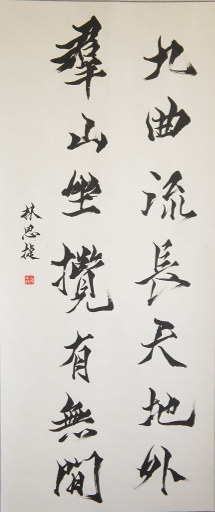 九曲流長天地外
羣山坐攬有無間
林思捷